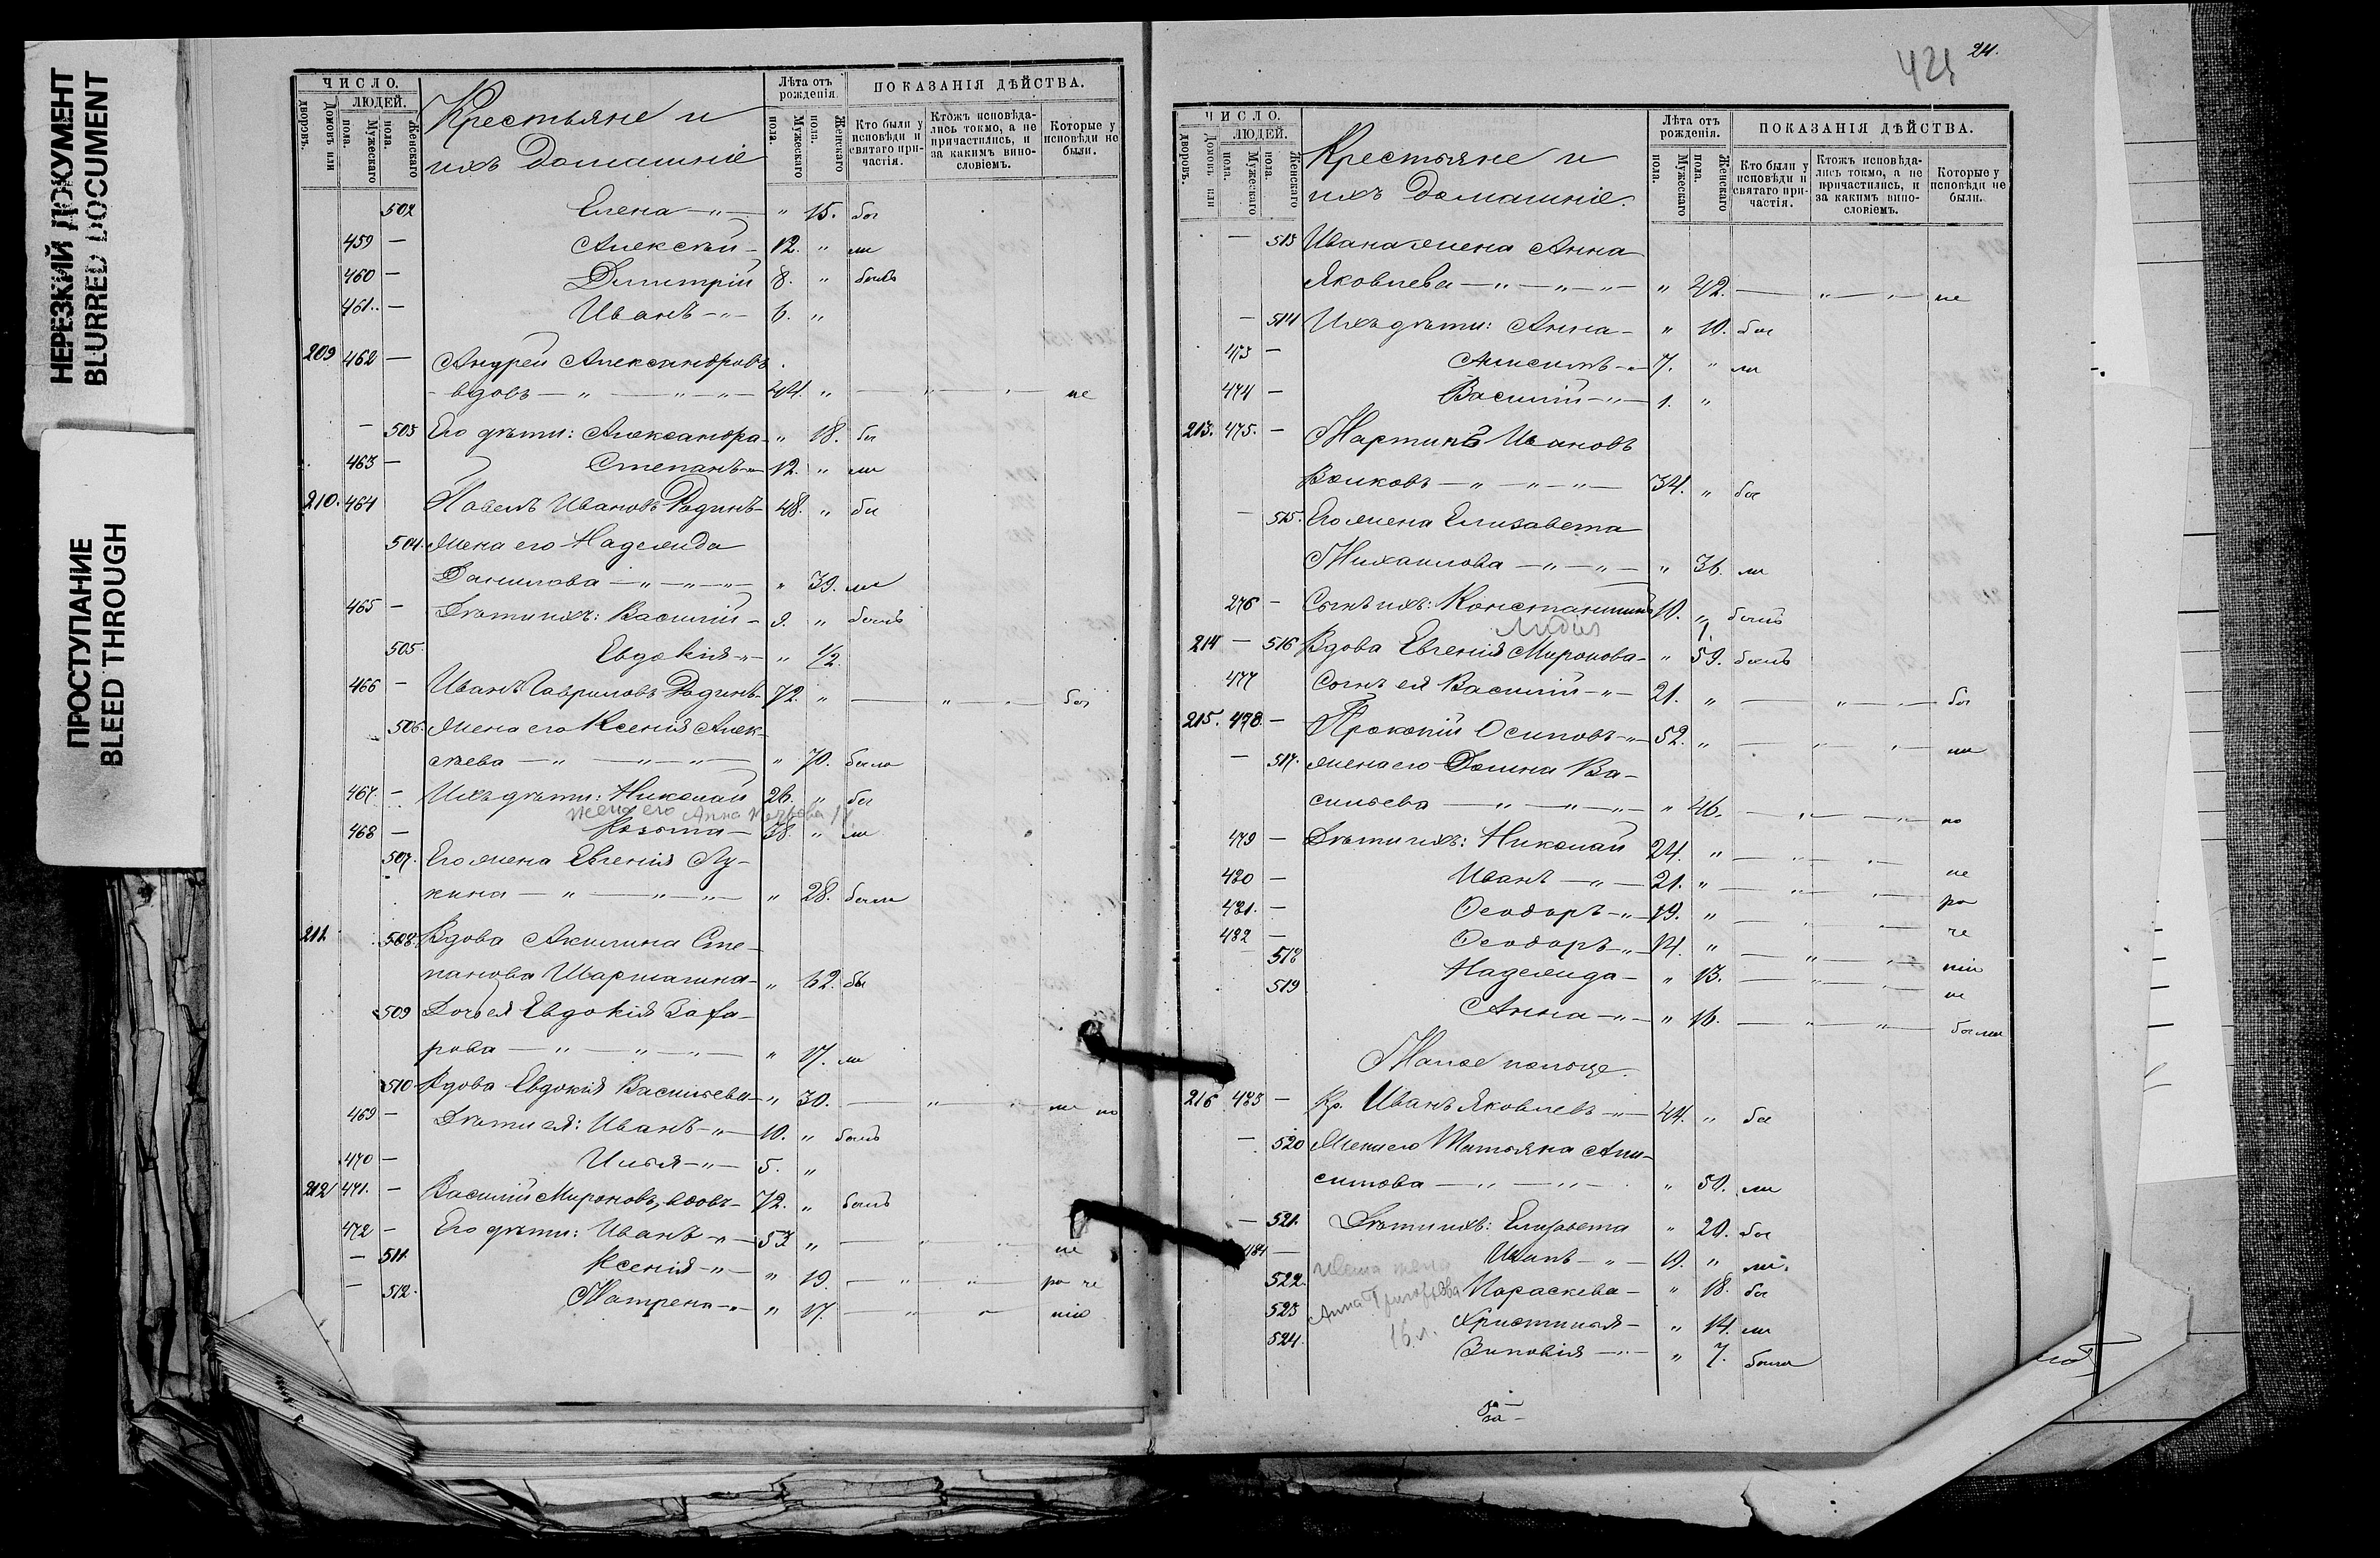 НЕРЕЗКИЙ ДОКУМЕНТ
BLURRED DOCUMENT
ПРОСТУПАНИЕ
BLEED THROUGH
ЧИСЛО.
ЛЮДЕЙ.
Домовъ или дворовъ.
Мужескаго пола.
Женскаго пола.
Крестьяне и
ихъ домашніе
Лѣта отъ рожденія.
Мужескаго пола.
Женскаго пола.
ПОКАЗАНІЯ ДѢЙСТВА.
Кто были у исповѣди и святаго причастія.
Ктожъ исповѣдались токмо, а не причастились, и за какимъ винословіемъ.
Которые у исповѣди не были.
502 Елена — " — " 15. бы
459 — Алексѣй — 12. " ли
460 — Димитрій 8. " быть
461. — Иванъ — " — 6. "
209 462 — Андрей Александровъ
вдовъ — " — " — " — 44. " — " — не
— 503 Его дѣти: Александра — " 18. бы
463 — Степанъ — " 12. " ли
210. 464 Павелъ Ивановъ Родинъ — 48. " бы
504. Жена его Надежда
Данилова — " — " — " — " 39. ли
465 — Дѣти ихъ: Василій — 9. " былъ
505. Евдокія — " — " 1/2
466 — Иванъ Гавриловъ Родинъ — 72. " — " — " — бы
506. Жена его Ксенія Алек-
сѣева — " — " — " — " 70. была
467. — Ихъ дѣти: Николай 26. " бы
жена его Анна
468 — Козьма — 38. " ли
507. Его жена Евгенія Лу-
кина — " — " — " — " 28. были
211. 508. Вдова Акилина Сте-
панова — " 62. бы
509 Дочь ея Евдокія Заха-
рова — " — " — " — " 17. ли
510 Вдова Евдокія Васильева — " 30. — " — " — не по
469 — Дѣти ея: Иванъ — " — 10. " былъ
470 — Илья — " — 5. "
212 471. — Василій Мироновъ, вдовъ — 72. " былъ
472 — Его дѣти: Иванъ — " — 53 " — " — " — не
— 511. Ксенія — " — " 19. — " — " — ра че
— 512. Матрена — " — " 17. — " — нію
421
24.
ЧИСЛО.
ЛЮДЕЙ.
Домовъ или дворовъ.
Мужескаго пола.
Женскаго пола.
Крестьяне и
ихъ домашніе.
Лѣта отъ рожденія.
Мужескаго пола.
Женскаго пола.
ПОКАЗАНІЯ ДѢЙСТВА.
Кто были у исповѣди и святаго причастія.
Ктожъ исповѣдались токмо, а не причастились, и за какимъ винословіемъ.
Которые у исповѣди не были.
— 513 Ивана жена Анна
Яковлева — " — " — " — " 42. — " — " — не
— 514 Ихъ дѣти: Анна — " 10. бы
473 — Анисимъ — " 7. " ли
474 — Василій — " — 1. "
213. 475. — Мартинъ Ивановъ
Волковъ — " — " — " — 34. " бы
— 515. Его жена Елизавета
Михаилова — " — " — " 36. ли
276 — Сынъ ихъ: Константинъ 10. " былъ
Лидія 1.
214 — 516 Вдова Евгенія Миронова — " 59. былъ
477 Сынъ ея Василій — " — 21. " — " — " — бы
215. 478. — Прокопій Осиповъ — " 52. " — " — " — ли
— 517. жена его Домна Ва-
сильева — " — " — " — " 46. — " — " — по
479 — Дѣти ихъ: Николай 24. " — " — " — не
480 — Иванъ — " — 21. " — " — " — ра
481. — Ѳеодоръ — " — 19. " — " — " — че
482 — Ѳеодоръ — " 14. " — " — " — нію
518 Надежда — " 13. — " — " — не
519 Анна — " — " 16. — " — " — были
Малое польце.
216 483 — Кр. Иванъ Яковлевъ — " — 44. " бы
— 520 Жена его Татьяна Ани-
симова — " — " — " 50. ли
— 521. Дѣти ихъ: Елизавета " 20. бы
484 — Иванъ — " — 19. " ли.
522. Параскева — " 18. бы
Ивана жена
Анна Григорьева
16 л.
523 Христинья — " 14. ли
524. Зиновія — " — " 7. была